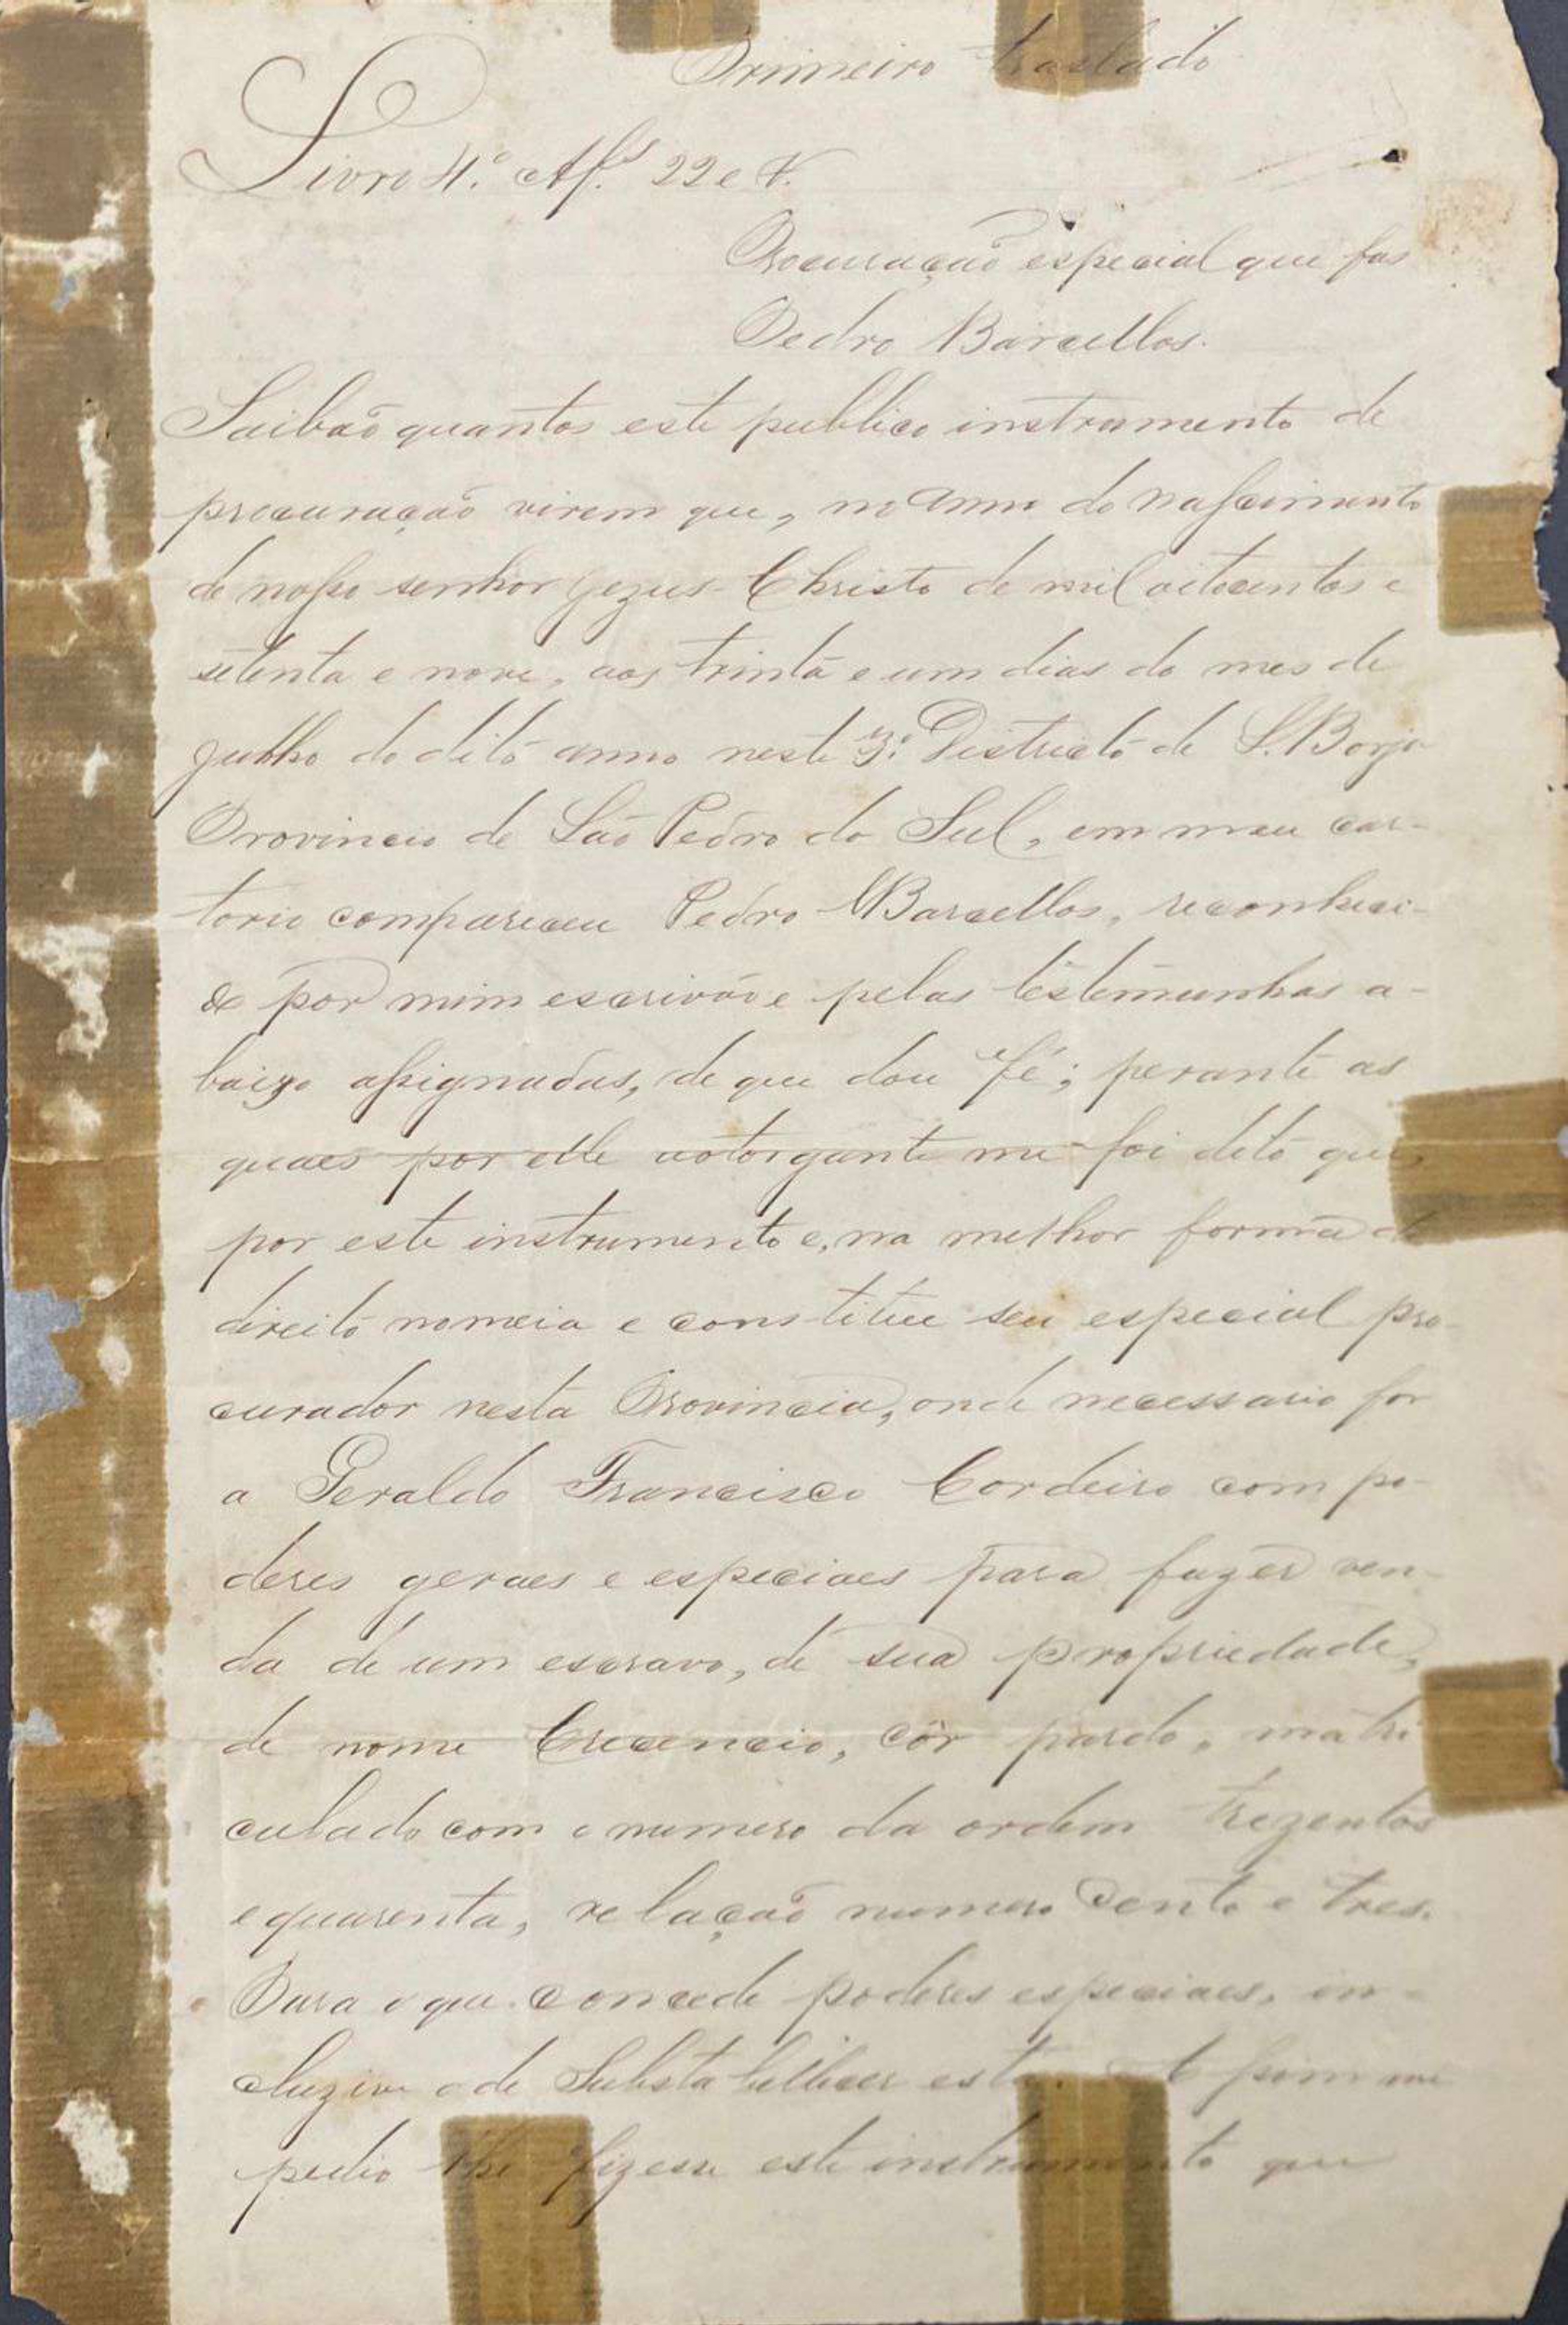 Primeiro traslado
Livro 4.º Af.s 22 e V.
Procuração especial que fas
Pedro Barcellos.
Saibão quantos este publico instrumento de
procuração virem que, no anno do nascimento
de nosso senhor Jezus Christo de mil oitocentos e
setenta e nove, aos trinta e um dias do mes de
julho do dito anno neste 3.º Districto de S. Borja
Provincia de São Pedro do Sul, em meu car-
torio compareceu Pedro Barcellos, reconheci-
do por mim escrivão e pelas testemunhas a-
baixo assignadas, de que dou fé; perante as
quaes por elle outorgante me foi dito que,
por este instrumento e, na melhor forma de
direito nomeia e constitue seu especial pro-
curador nesta Provincia, onde necessario for
a Geraldo Francisco Cordeiro com po-
deres geraes e especiaes para fazer ven-
da de um escravo, de sua propriedade,
de nome Crecencio, côr pardo, matri
culado com o numero da ordem trezentos
e quarenta, relação numero cento e tres.
Para o que concede poderes especiaes, in-
cluzive o de Substabellecer esta. E assim me
pedio lhe fizesse este instrumento que